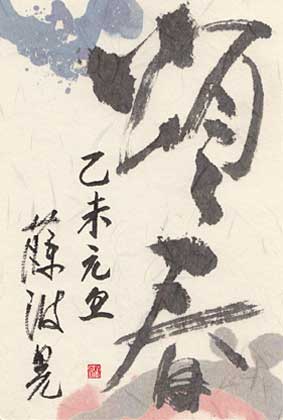 頌春
乙未元旦
藤波晃